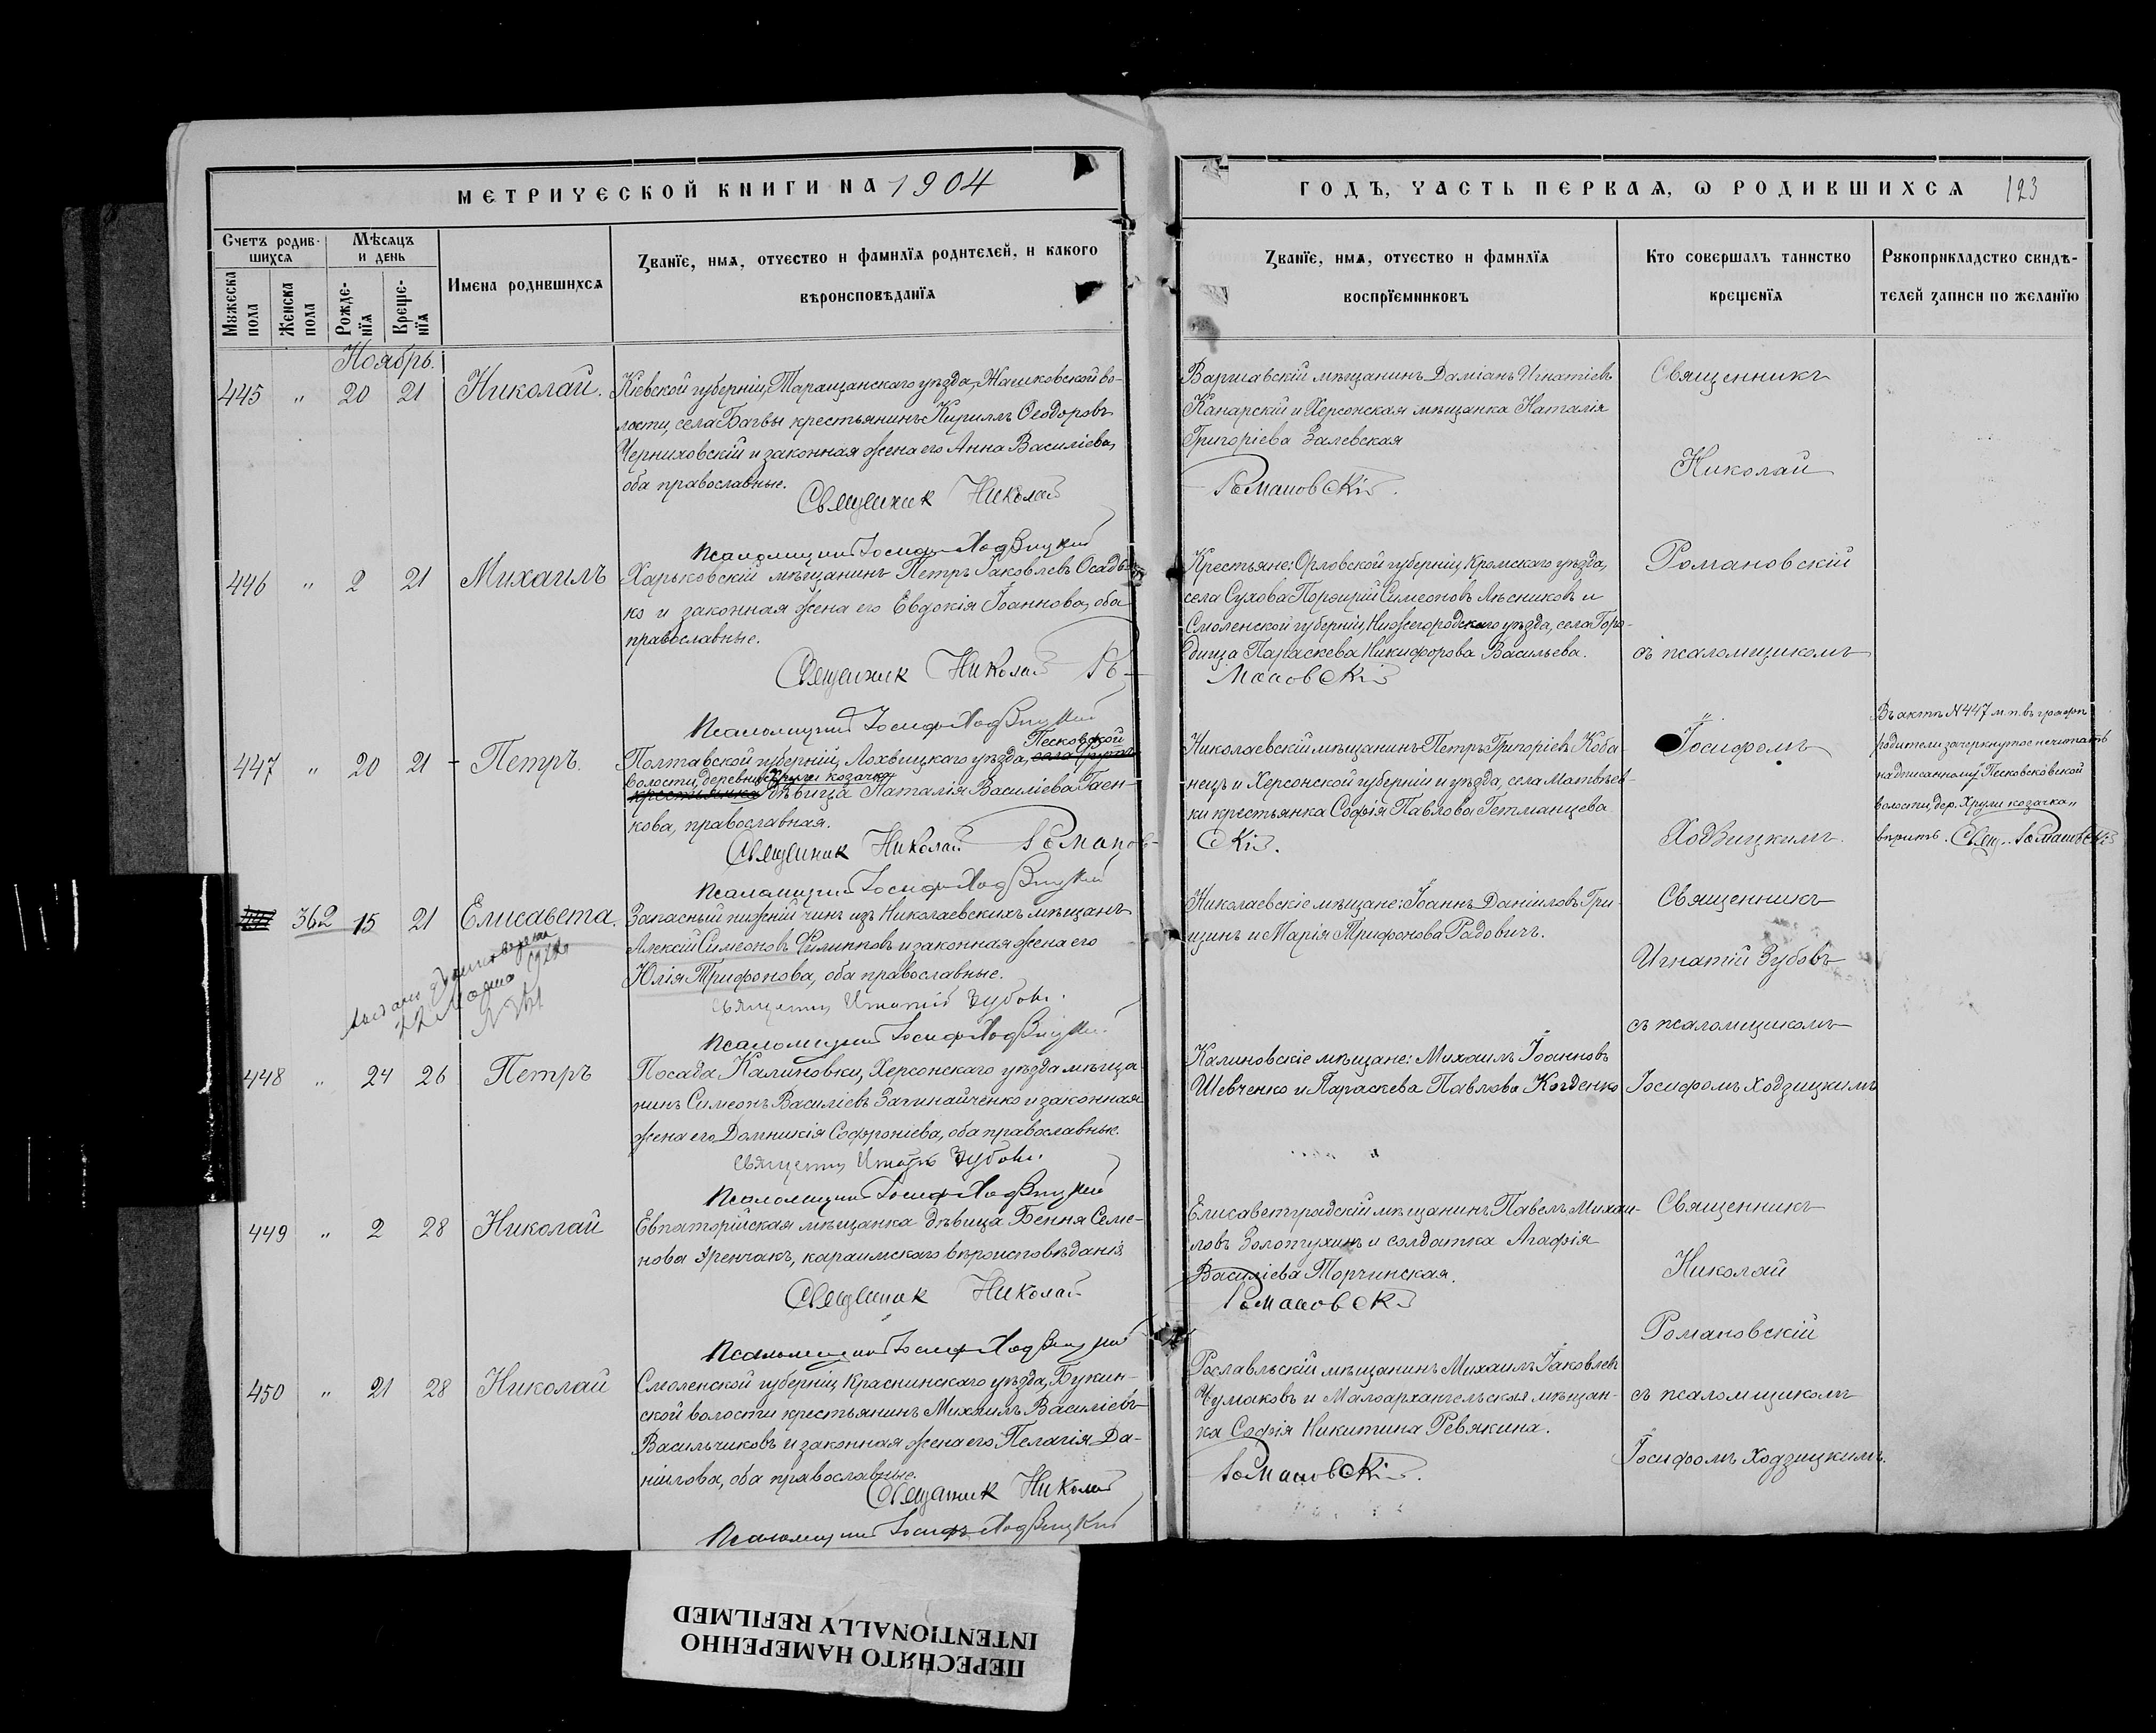 МЕТРИЧЕСКОЙ КНИГИ НА 1904
Счетъ родившихся
Мѣсяцъ и день
Мужеска пола
Женска пола
Рожденїя
Крещенїя
Имена родившихся
Званїе, имя, отчество и фамилїя родителей, и какого
вѣроисповѣданїя
Ноябрь.
445 " 20 21 Николай.
Кіевской губерніи, Таращанскаго уѣзда, Жашковской во-
лости, села Багвы крестьянинъ Кириллъ Ѳеодоровъ
Черниховскій и законная жена его Анна Василіева,
оба православные.
Священник Николай
Псаломщикъ Іосифъ Ходзицкій
446 " 2 21 Михаилъ
Харьковскій мѣщанинъ Петръ Іаковлевъ Осадь
ко и законная жена его Евдокія Іоаннова, оба
православные.
Священник Николай Ро-
Псаломщикъ Іосифъ Ходзицкій
447 " 20 21 Петръ.
Песковской
Полтавской губерніи, Лохвицкаго уѣзда, село
волости, деревни Хрули козачка
крестьянка дѣвица Наталія Василіева Гаен-
кова, православная.
Священник Николай Романов-
Псаломщикъ Іосифъ Ходзицкій
362 15 21 Елисавета.
Запасный нижній чинъ изъ Николаевскихъ мѣщанъ
Алексій Симеоновъ Филипповъ и законная жена его
Юлія Трифонова, оба православные.
Священникъ Игнатій Зубовъ.
Псаломщикъ Іосифъ Ходзицкій
448 " 24 26 Петръ
Посада Калиновки, Херсонскаго уѣзда мѣща
нинъ Симеонъ Василіевъ Зачинайченко и законная
жена его Домникія Софроніева, оба православные.
Священникъ Игнатій Зубовъ.
Псаломщикъ Іосифъ Ходзицкій
449 " 2 28 Николай
Евпаторійская мѣщанка дѣвица Бення Семе-
нова Эренчакъ, караимскаго вѣроисповѣданія
Священник Николай
Псаломщикъ Іосифъ Ходзицкій
450 " 21 28 Николай
Смоленской губерніи, Краснинскаго уѣзда, Букин-
ской волости крестьянинъ Михаилъ Василіевъ
Васильчиковъ и законная жена его Пелагія Да-
ніилова, оба православные.
Священник Николай
Псаломщикъ Іосифъ Ходзицкій
ГОДЪ, ЧАСТЬ ПЕРВАЯ, Ѡ РОДИВШИХСЯ 123
Званїе, имя, отчество и фамилїя
воспрїемниковъ
Кто совершалъ таинство
крещенїя
Рукоприкладство свидѣ-
телей записи по желанїю
Варшавскій мѣщанинъ Даміанъ Игнатіевъ
Капарскій и Херсонская мѣщанка Наталія
Григоріева Залевская
Романовскій.
Крестьяне: Орловской губерніи, Кромскаго уѣзда,
села Сухова Порфирій Симеоновъ Лѣсниковъ и
Смоленской губерніи, Нижегородскаго уѣзда, села Горо-
дища Параскева Никифорова Васильева.
мановскій
Николаевскій мѣщанинъ Петръ Григоріевъ Коба-
нецъ и Херсонской губерніи и уѣзда, села Матвѣев-
ки крестьянка Софія Павлова Гетманцева
скій.
Николаевскіе мѣщане: Іоаннъ Даніиловъ Гри-
щинъ и Марія Трифонова Радовичъ.
Калиновскіе мѣщане: Михаилъ Іоанновъ
Шевченко и Параскева Павлова Когденко
Елисаветградскій мѣщанинъ Павелъ Михаи-
ловъ Золотухинъ и солдатка Агафія
Василіева Торчинская.
Романовскій
Рославльскій мѣщанинъ Михаилъ Іаковлевъ
Чумаковъ и Малоархангельская мѣщан-
ка Софія Никитина Ревякина.
Романовскій.
Священникъ
Николай
Романовскій
съ псаломщикомъ
Іосифомъ
Ходзицкимъ.
Священникъ
Игнатій Зубовъ
съ псаломщикомъ
Іосифомъ Ходзицкимъ
Священникъ
Николай
Романовскій
съ псаломщикомъ
Іосифомъ Ходзицкимъ.
Въ актѣ №447 м.п. въ графѣ
родители зачеркнутое не читать
надписанному "Песковской
волости, дер. Хрули козачка"
вѣрить. Свящ. Романовскій
ПЕРЕСНЯТО НАМЕРЕННО
INTENTIONALLY REFILMED